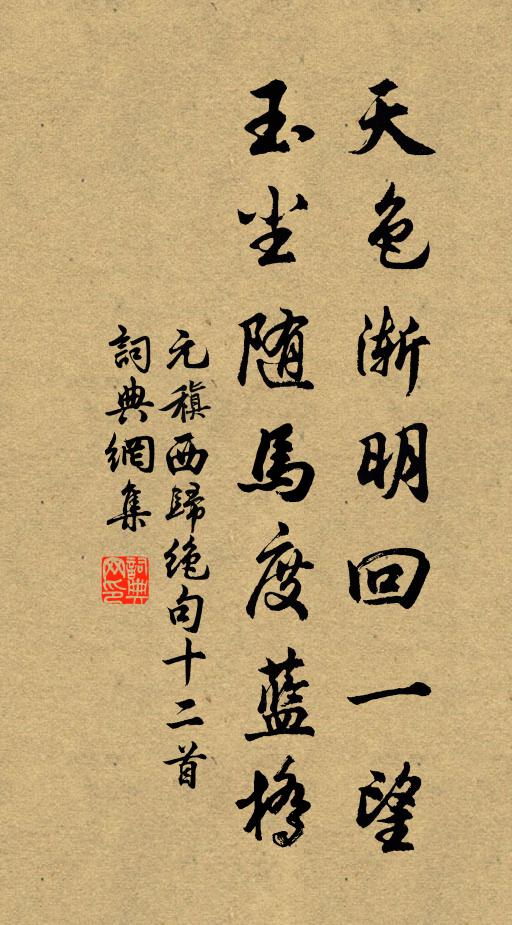 天色漸明回一望
玉尘随馬度藍橋
元稹西歸绝句十二首
詞典網集
詞典网印